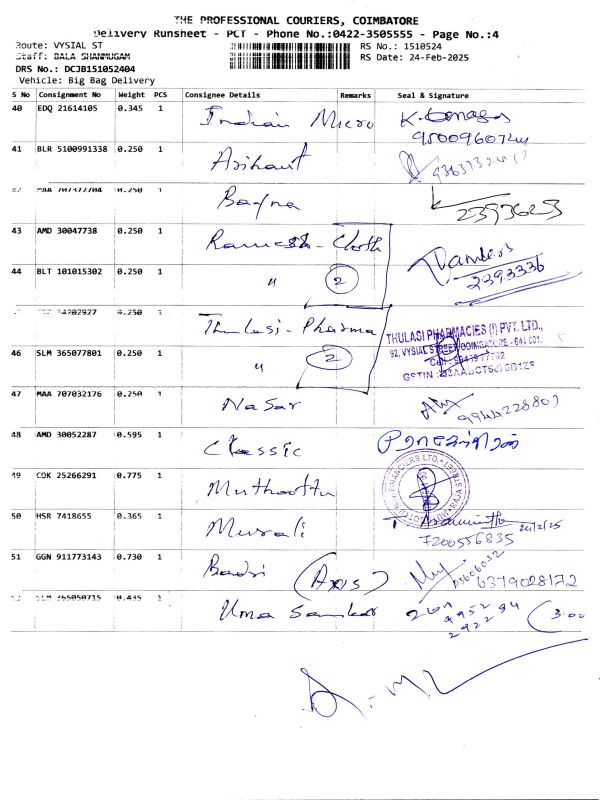 THE PROFESSIONAL COURIERS, COIMBATORE
Delivery Runsheet - PCT - Phone No.:0422-3505555 - Page No.:4
Route: VYSIAL ST
RS No.: 1510524
Staff: BALA SHANMUGAM
RS Date: 24-Feb-2025
DRS No.: DCJB151052404
Vehicle: Big Bag Delivery
S No Consignment No Weight PCS Consignee Details Remarks Seal & Signature
40 EDQ 21614105 0.345 1 Indian Micro
41 BLR 5100991338 0.250 1 Arihant
MAA 707372704 0.250 1 Bafna
43 AMD 30047738 0.250 1 Ramesh - Cloth
2393336
44 BLT 101015302 0.250 1 " 2
34202927 0.250 1 Thulasi - Pharma
THULASI PHARMACIES (I) PVT. LTD.,
92, VYSIAL STREET, COIMBATORE - 641 001.
46 SLM 365077801 0.250 1 " 2
47 MAA 707032176 0.250 1 Nasar
9944228807
48 AMD 30052287 0.595 1 Classic
49 COK 25266291 0.775 1 Muthoottu
50 HSR 7418655 0.365 1 Murali
24/2/25
7200556835
51 GGN 911773143 0.730 1 Badri (Axis)
6379028172
SLM 365050715 0.435 1 Uma Sankar
3.00